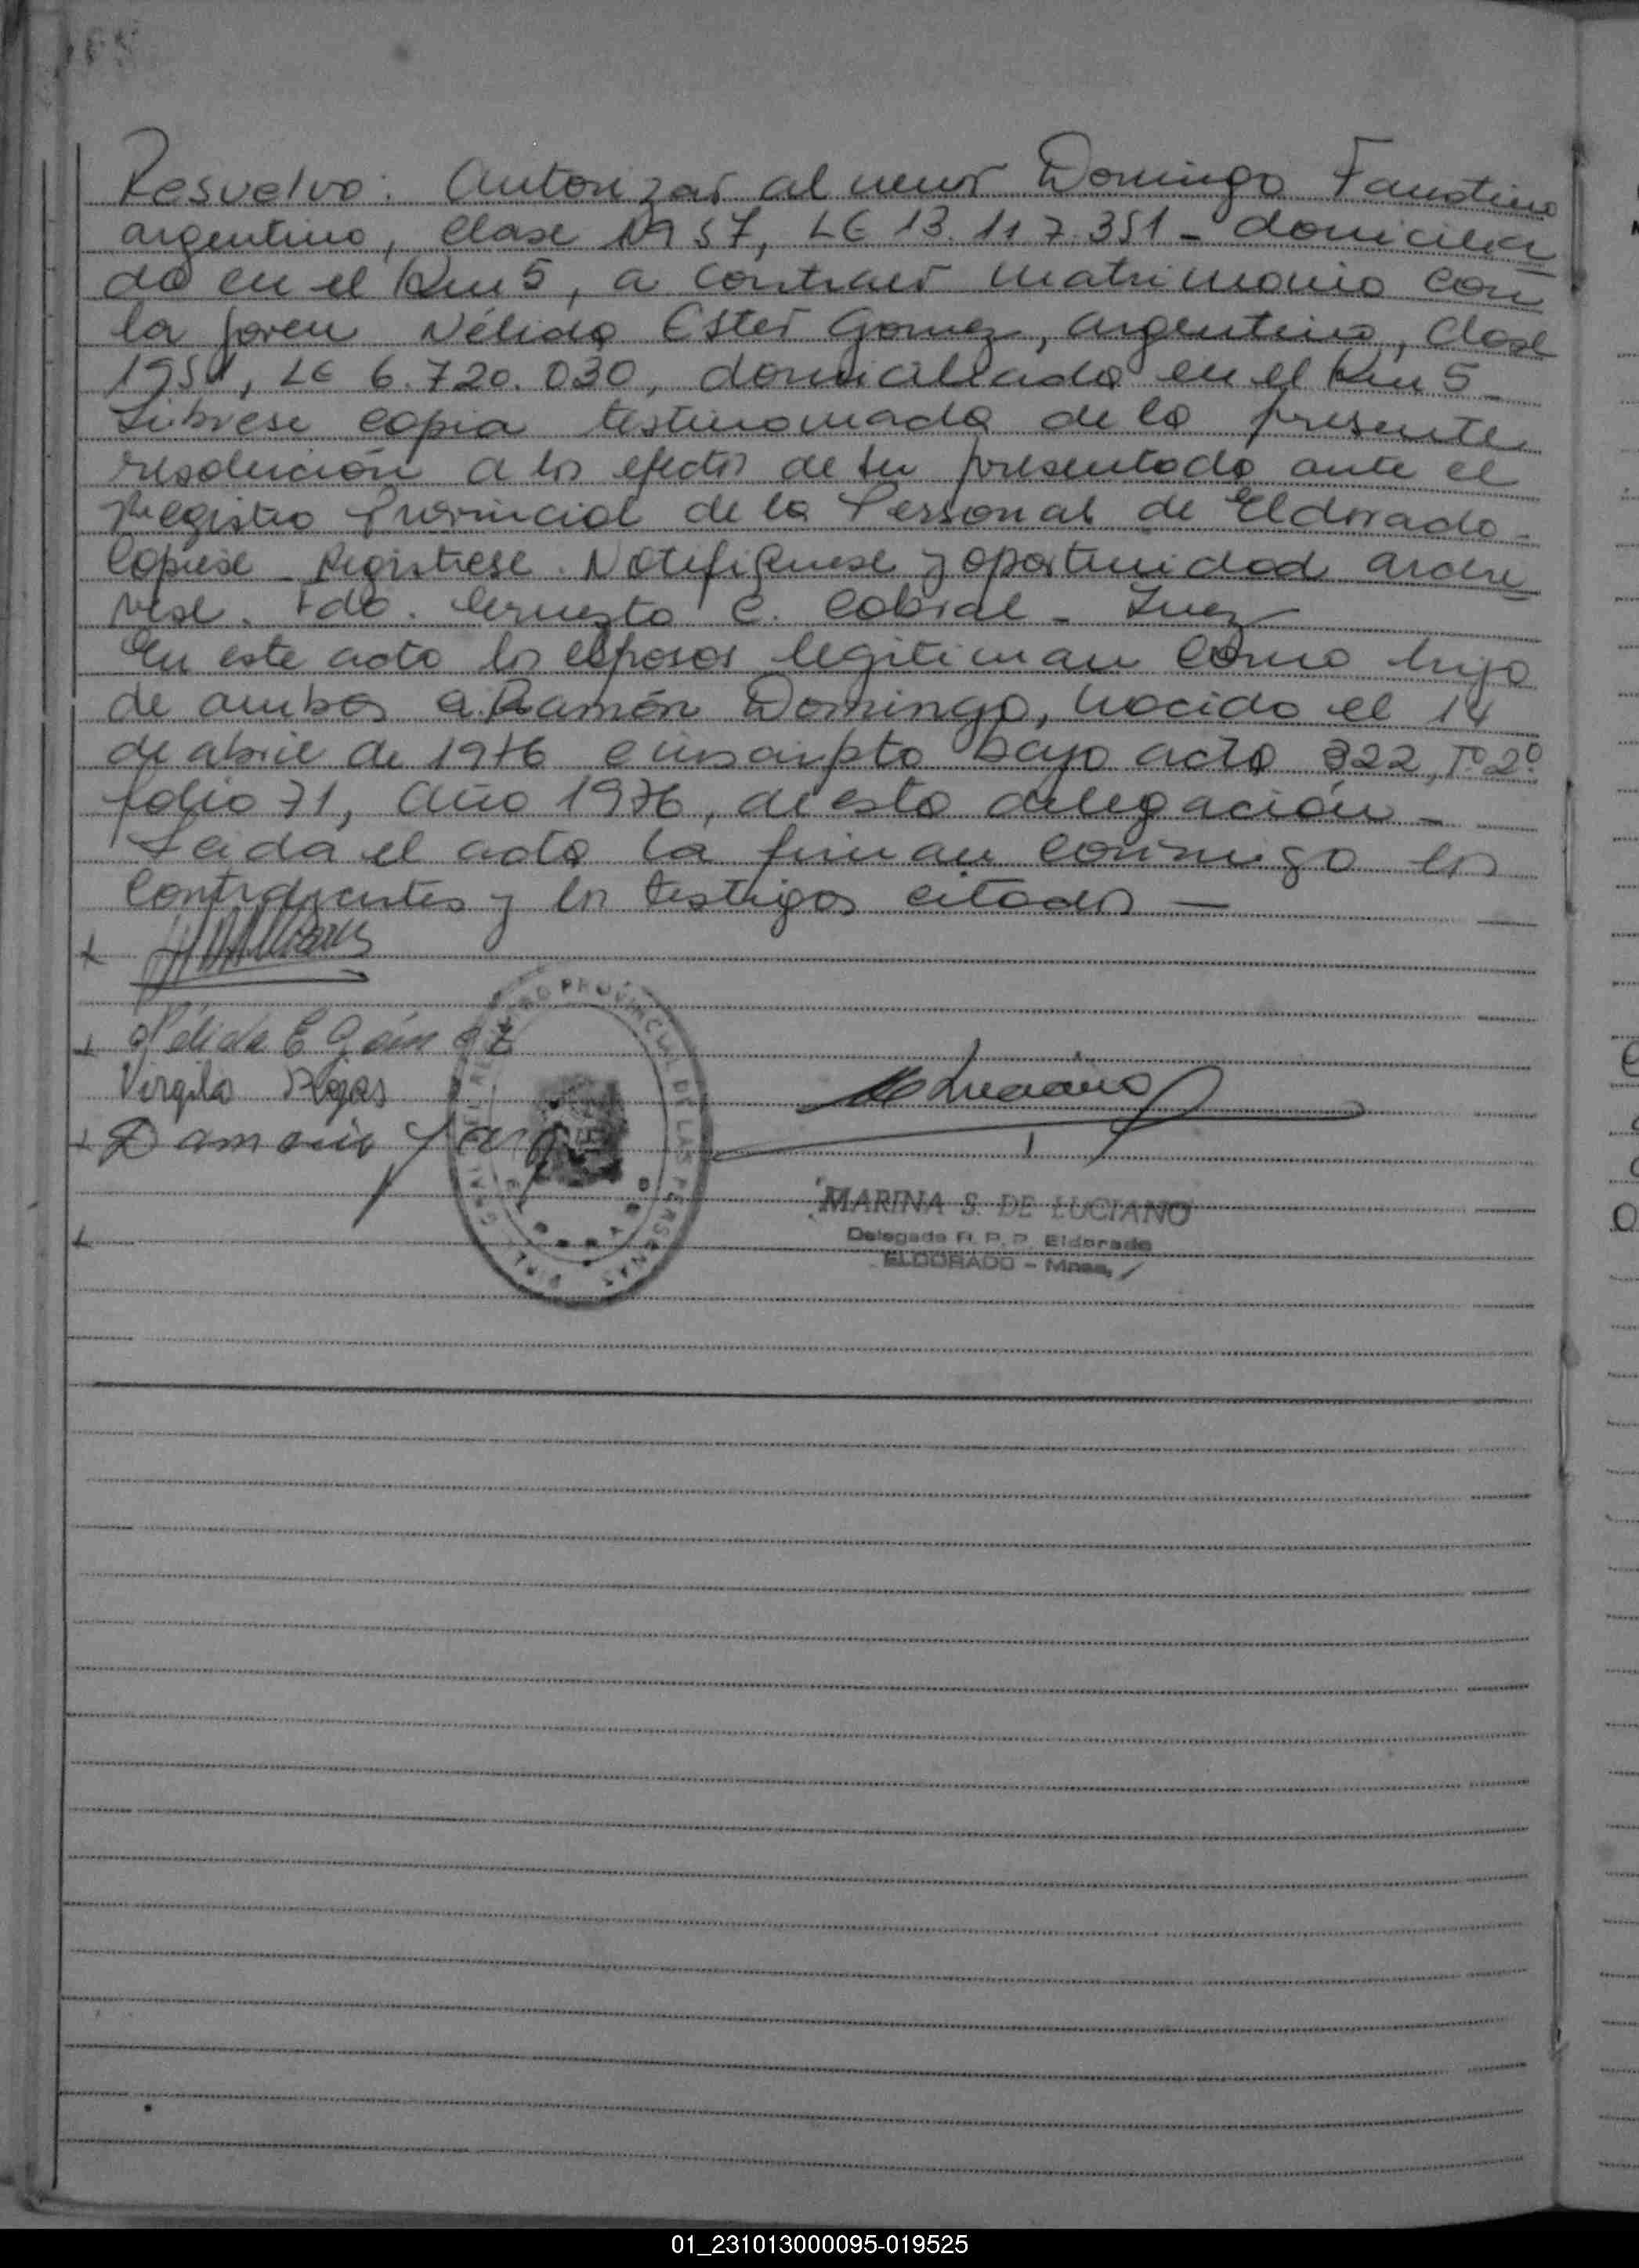 Resuelvo: Autorizar al menor Domingo Faustino
argentino, clase 1957, LE 13.117.351 - domicilia
do en el Km 5, a contraer matrimonio con
la joven Nélida Ester Gomez, argentina, clase
1951, LE 6.720.030, domiciliada en el Km 5
Líbrese copia testimoniada de la presente
resolución a los efectos de ser presentada ante el
Registro Provincial de la Personal de Eldorado -
Copiese - Registrese. Notifiquese y oportunidad archi
vese. Fdo. Ernesto C. Cabral - Juez
En este acto los esposos legitiman como hijo
de ambos a Ramón Domingo, nacido el 14
de abril de 1976 e inscripto bajo acta 322, Tº 2º
folio 71, año 1976, de esta delegación -
Leida el acta la firman conmigo los
contrayentes y los testigos citados -
Nélida E Gómez
Virgilio Rojas
Damacio
M Luciano
PROVINCIAL DE LAS PERSONAS
MARINA S. DE LUCIANO
Delegada R. P. P. Eldorado
ELDORADO - Mnes,
01_231013000095-019525